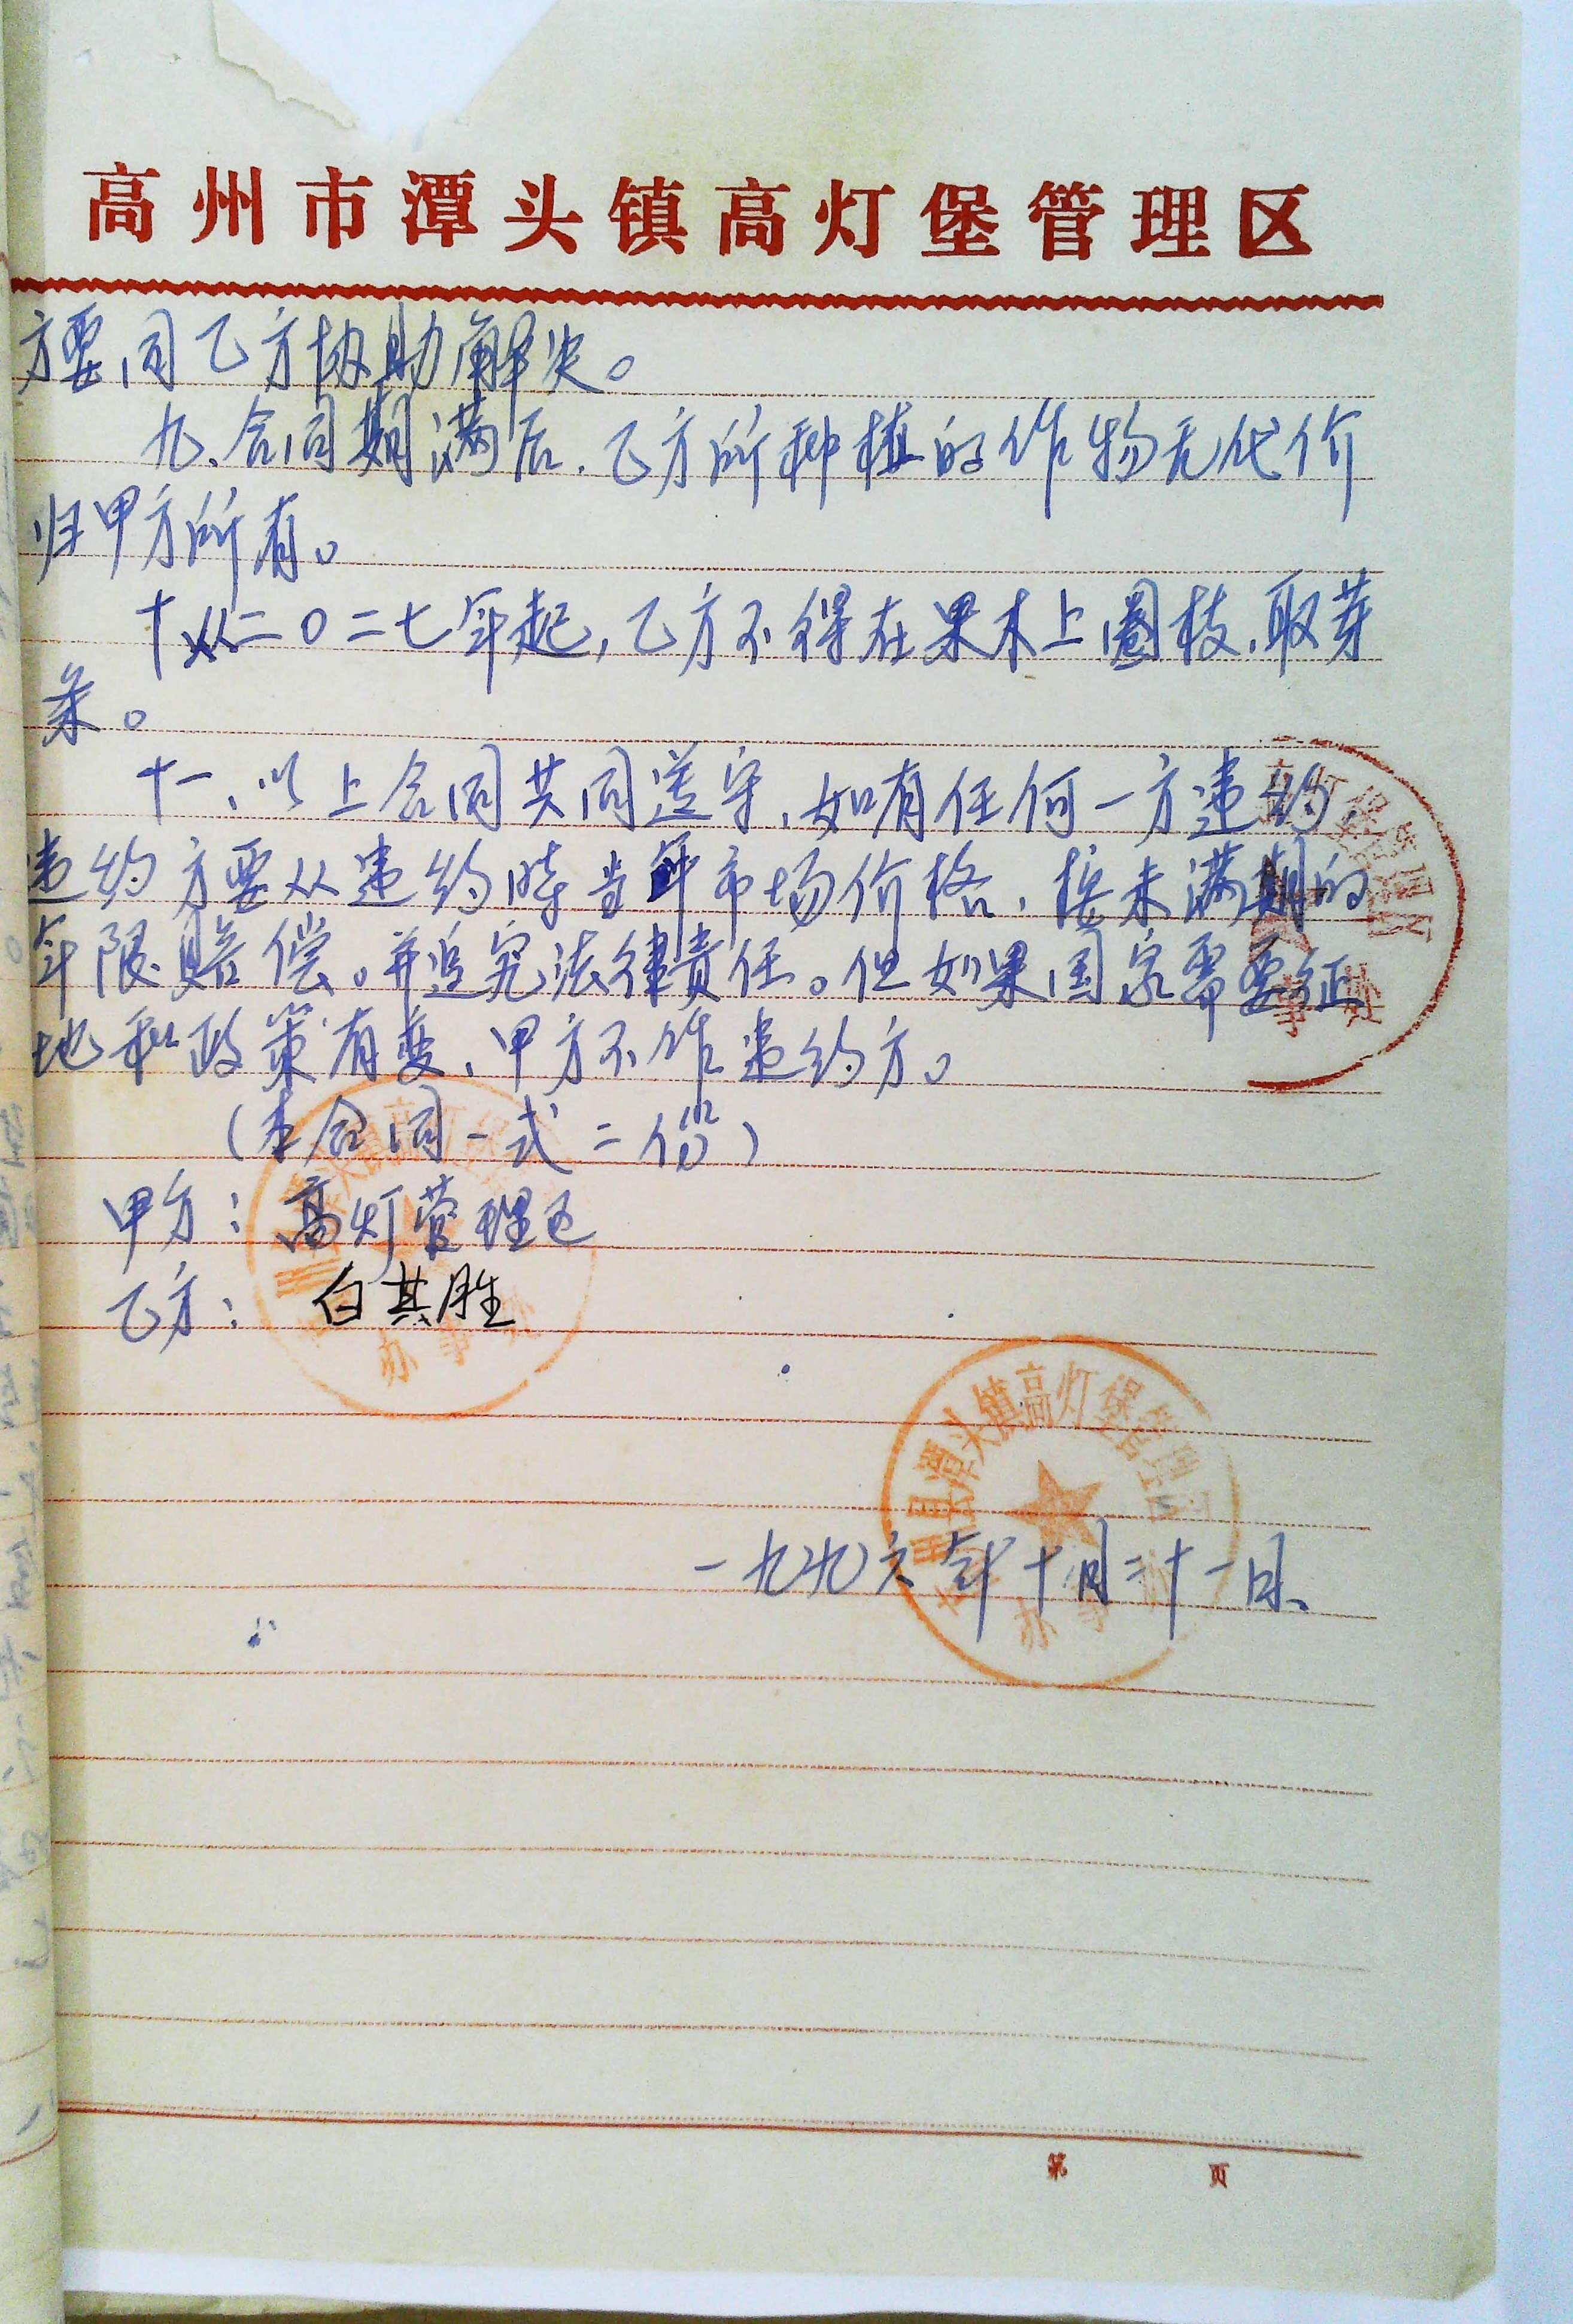 高州市潭头镇高灯堡管理区
方要同乙方协助解决。
九、合同期满后，乙方所种植的作物无代价
归甲方所有。
十从二0二七年起，乙方不得在果木上圈枝、取芽
条。
十一、以上合同共同遵守，如有任何一方违约，
违约方要从违约时当年市场价格，按未满期的
年限赔偿。并追究法律责任。但如果国家需要征
地和政策有变，甲方不作违约方。
（本合同一式二份）
甲方：高灯管理区
乙方：白其胜
潭头镇高灯堡管理区
一九九六年十月二十一日、
办事
第 页